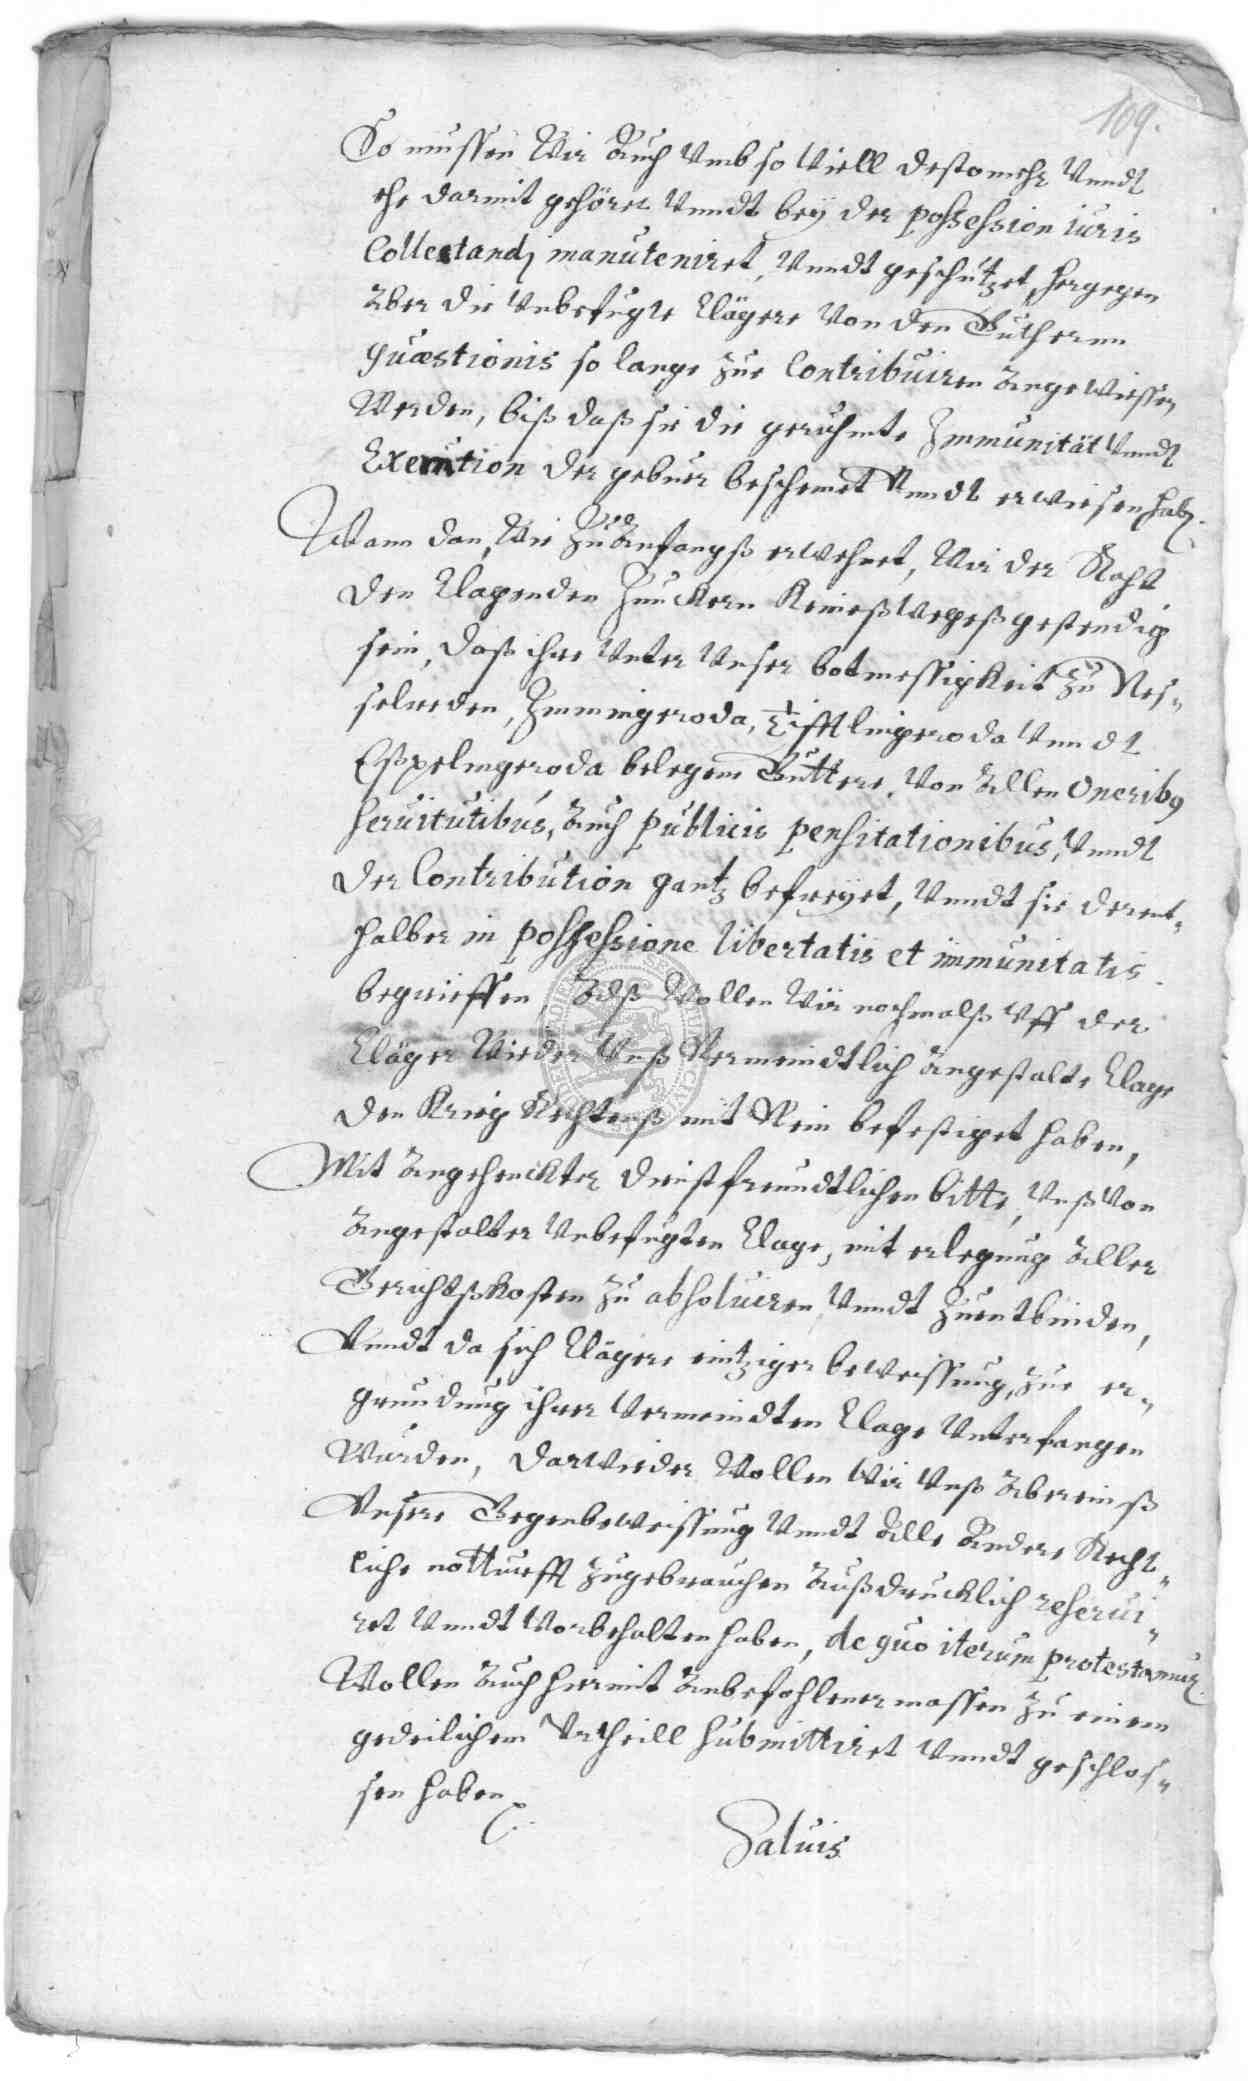 109.
So mussen Wir Auch Vmb so Viell destomehr Vnndt
ehe darmit gehöret Vnndt bey der possession iuris
Collectandj manuteniret, Vnndt geschützet, hergegen
Aber die Vnbefugte Clägere Von den Güthernn
quæstionis so lange zue Contribuiren AngeWiessen
Werden, biß daß sie die geruhmte Immunität Vnndt
Exemtion der gebuer bescheinet Vnndt erwiesen hab.
Wann dan, Wie Zu Anfangß erWehnet, Wir der Raht
den Clagenden Junckern KeineßWegeß gestendig
sein, daß ihre Vnter Vnser botmessigkeit Zu Nes=
selreden, Immingeroda, Tifftlingeroda Vnndt
Eßpelingeroda belegene Güttere, Von Allen Oneribus
seruitutibus, Auch publicis pensitationibus, Vnndt
der Contribution gantz befreyet, Vnndt sie derent=
halber in possessione libertatis et immunitatis
begrieffen Alß Wollen Wir nochmalß Vff der
Cläger Wieder Vnß Vermeindtlich Angestalte Clage
den Krieg Rechtenß mit Nein befestiget haben,
Mit Angehenckter dienstfreundtlichen bitte, Vnß Von
Angestalter Vnbefugten Clage, mit erlegung Aller
Gerichtßkosten Zu absoluiren Vnndt Zuentbinden,
Vnndt da sich Clägere eintziger beWeissung, zue er=
grundung ihrer Vermeindten Clage Vnterfangen
Wurden, darWieder Wollen Wir Vnß Abereinß
Vnsere GegenbeWeissung Vnndt Alle Andere Recht=
liche notturfft Zugebrauchen Außdrucklich reserui=
ret Vnndt Vorbehalten haben, de quo iterum protestamur
Wollen Auch hiermit Anbefohlener massen Zu einem
gedeilichem Vrtheill submittiret Vnndt geschlos=
sen haben
Saluis